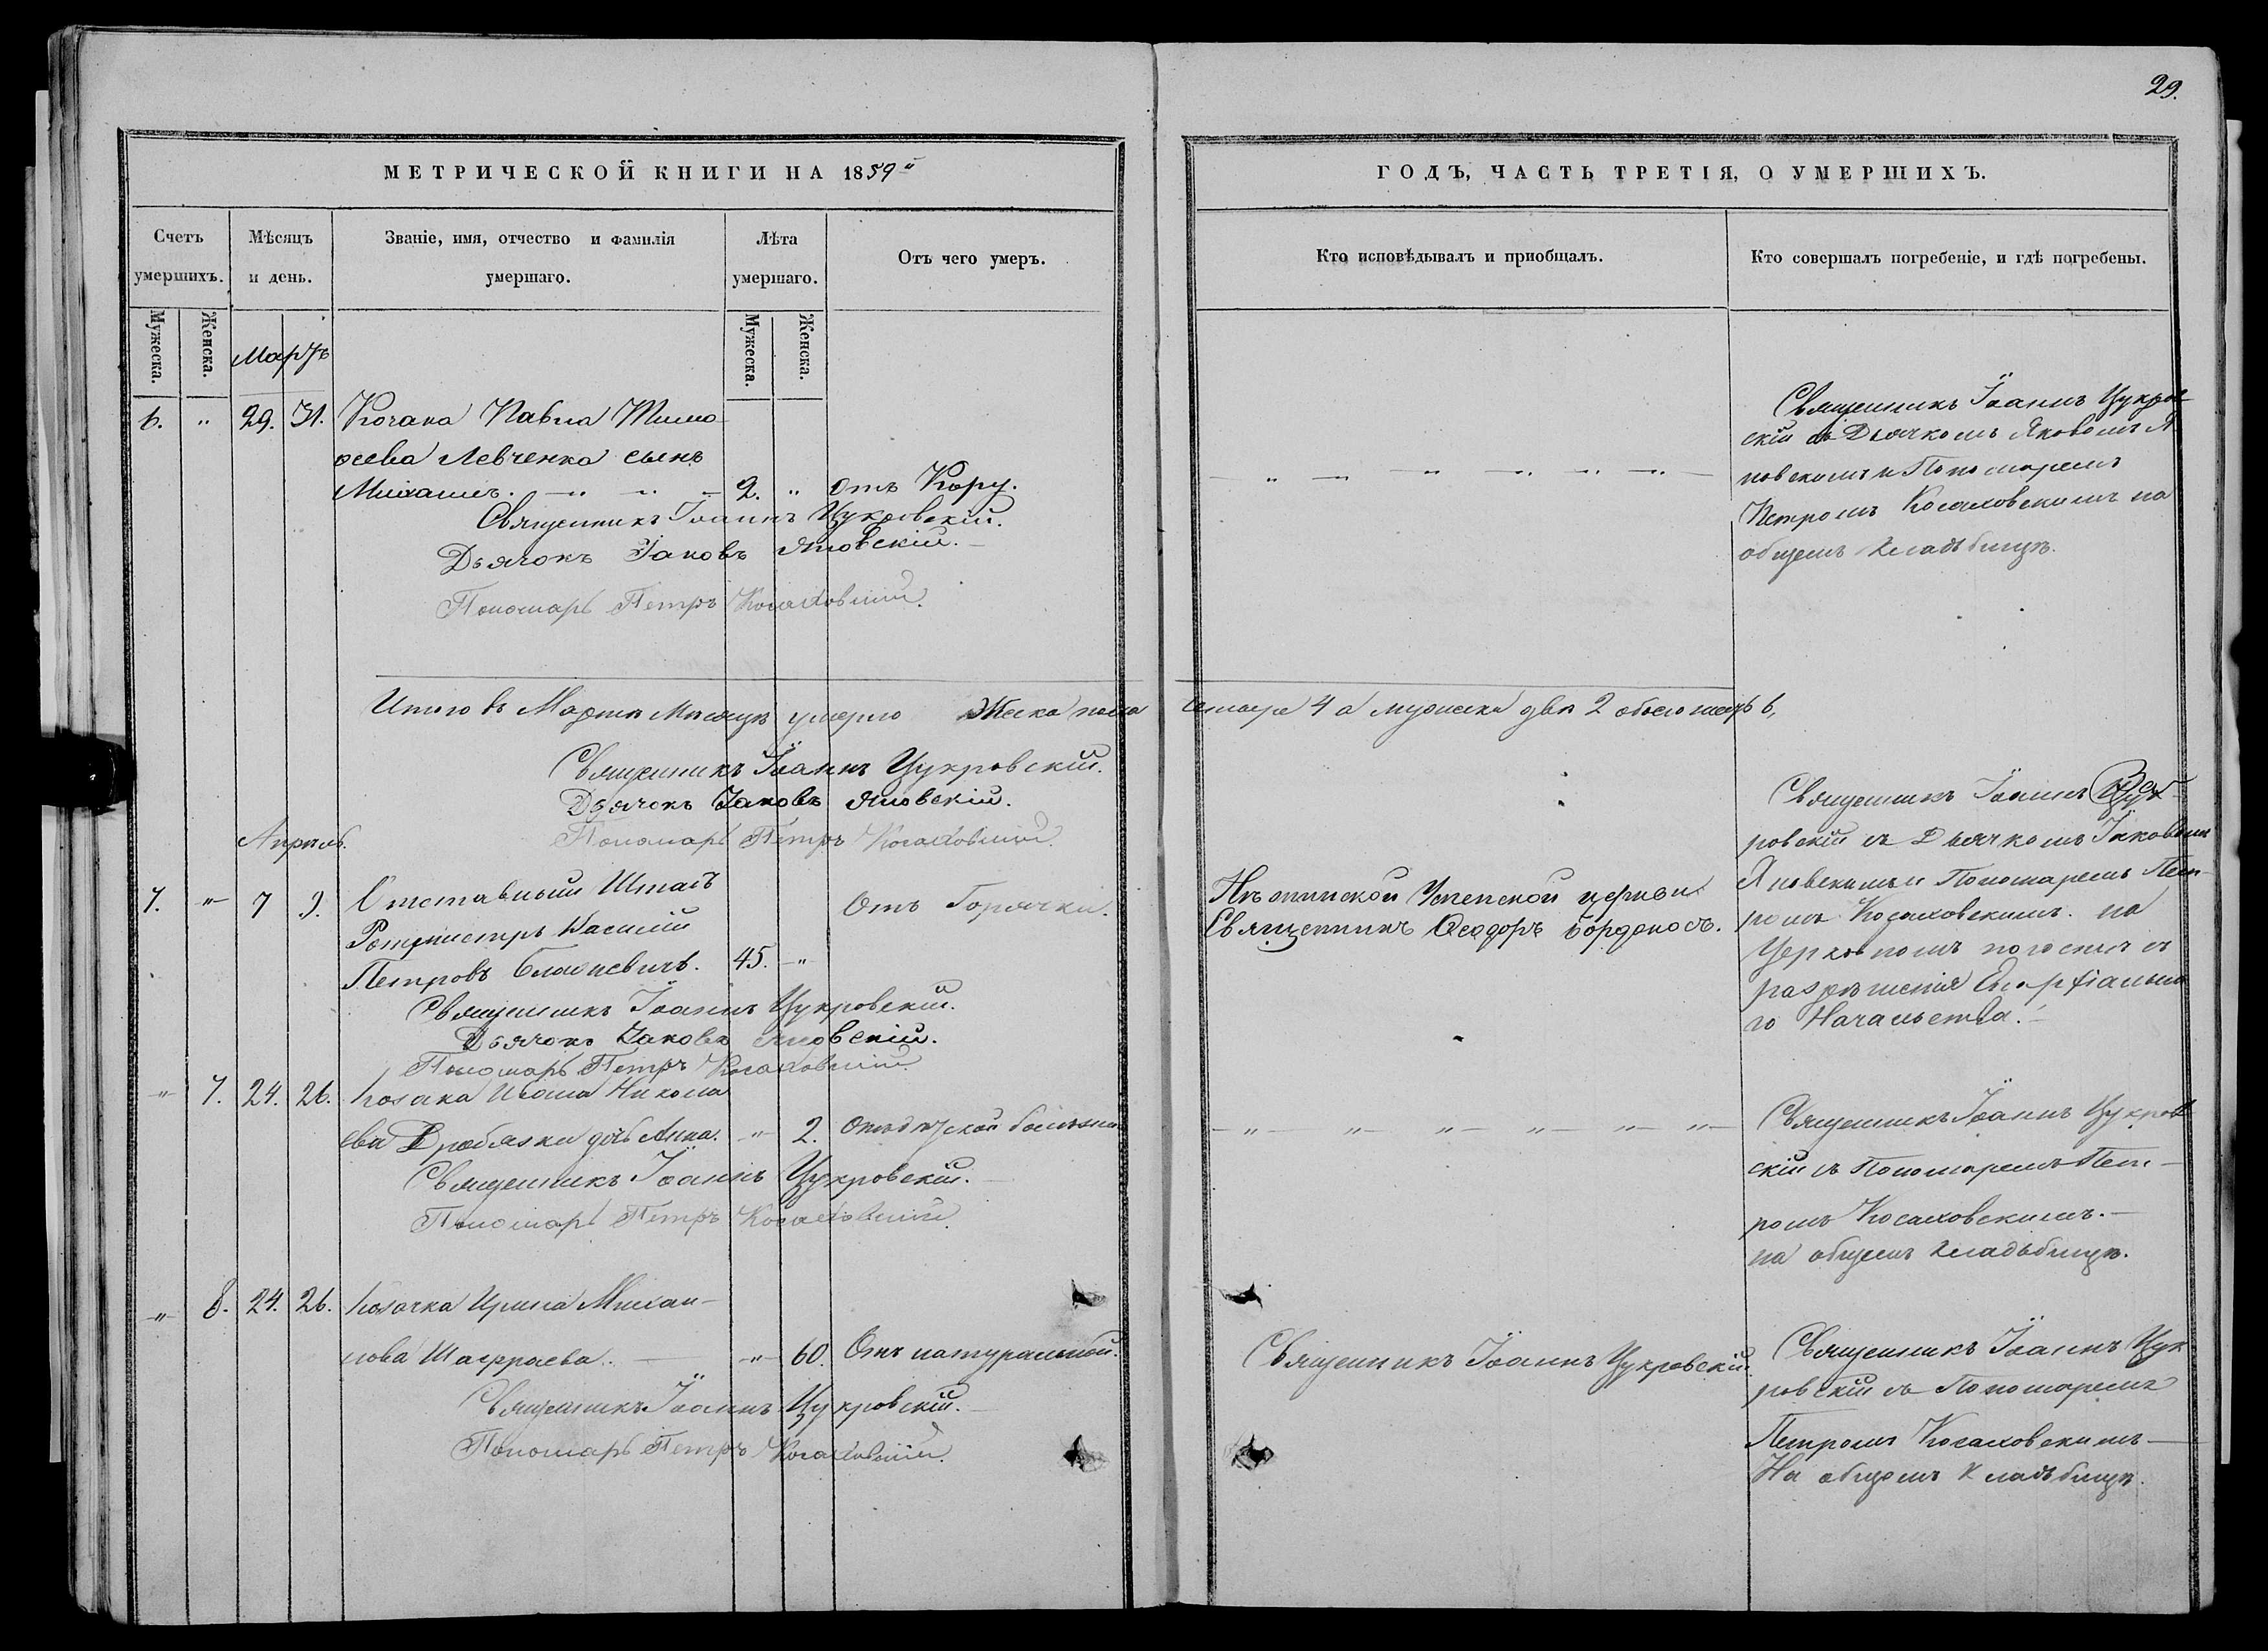 29.
МЕТРИЧЕСКОЙ КНИГИ НА 1859й
ГОДЪ, ЧАСТЬ ТРЕТІЯ, О УМЕРШИХЪ.
Счетъ умершихъ.
Мѣсяцъ и день.
Званіе, имя, отчество и фамилія умершаго.
Лѣта умершаго.
Отъ чего умеръ.
Кто исповѣдывалъ и приобщалъ.
Кто совершалъ погребеніе, и гдѣ погребены.
Мужеска.
Женска.
Мужеска.
Женска.
Мартъ
6. " 29. 31. Козака Павла Тимо
ѳеева Левченка сынъ
Михаилъ. 2. " Отъ Кору.
Священникъ Іоаннъ Цукровскій.
Дьячокъ Іаковъ Яновскій.
Пономарь Петръ Косаковскій.
Священникъ Іоаннъ Цукров
скій съ Дьячкомъ Яковомъ Я
новскимъ и Пономаремъ
Петромъ Косаковскимъ на
общемъ кладбищѣ.
Итого въ Мартѣ Мѣсяцѣ умерло Женска пола четыре 4 а мужеска два 2 обоего шесть 6,
Священникъ Іоаннъ Цукровскій.
Дьячокъ Іаковъ Яновскій.
Пономарь Петръ Косаковскій.
Апрѣль.
7. " 7 9. Отставный Штабъ
Ротмистръ Василій
Петровъ 45. "
Отъ Горячки.
Священникъ Іоаннъ Цукровскій.
Дьячокъ Іаковъ Яновскій.
Пономарь Петръ Косаковскій.
Нѣжинской Успенской церкви
Священникъ Ѳеодоръ Бордоносъ.
Священникъ Іоаннъ Цук
ровскій съ Дьячкомъ Іаковомъ
Яновскимъ и Пономаремъ Пет
ромъ Косаковскимъ. на
Церковномъ погостѣ съ
разрѣшенія Епархіально
го Начальства.
" 7. 24. 26. Козака Ивана Никола
ева Дробязки дочь Анна. " 2. Отъ дѣтской болѣзни
Священникъ Іоаннъ Цукровскій.
Пономарь Петръ Косаковскій.
Священникъ Іоаннъ Цукров
скій съ Пономаремъ Пет
ромъ Косаковскимъ.
на общемъ кладьбищѣ.
" 8. 24. 26. Козачка Ирина Михаи
лова " 60. Отъ натуральной.
Священникъ Іоаннъ Цукровскій.
Пономарь Петръ Косаковскій.
Священникъ Іоаннъ Цукровскій
Священникъ Іоаннъ Цук
ровскій съ Пономаремъ
Петромъ Косаковскимъ
На общемъ Кладьбищѣ.